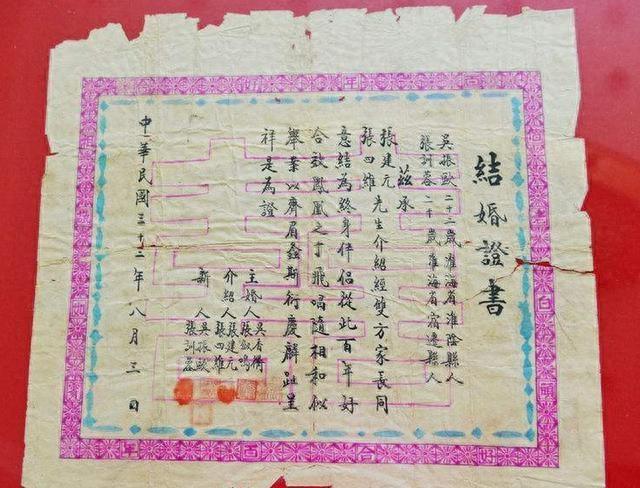 結婚證書
吳振歐二十二歲淮海省淮陰縣人
張訓蓉二十歲淮海省宿遷縣人
茲承
張建元
張四雄
先生介紹經雙方家長同
意結為終身伴侶從此百年好
合效鳳凰之于飛唱隨相和似
舉案以齊眉螽斯衍慶麟趾呈
祥是為證
主婚人
吳香
張鳴
介紹人
張建元
張四雄
新人
吳振歐
張訓蓉
中華民國三十二年八月三日
好合百年